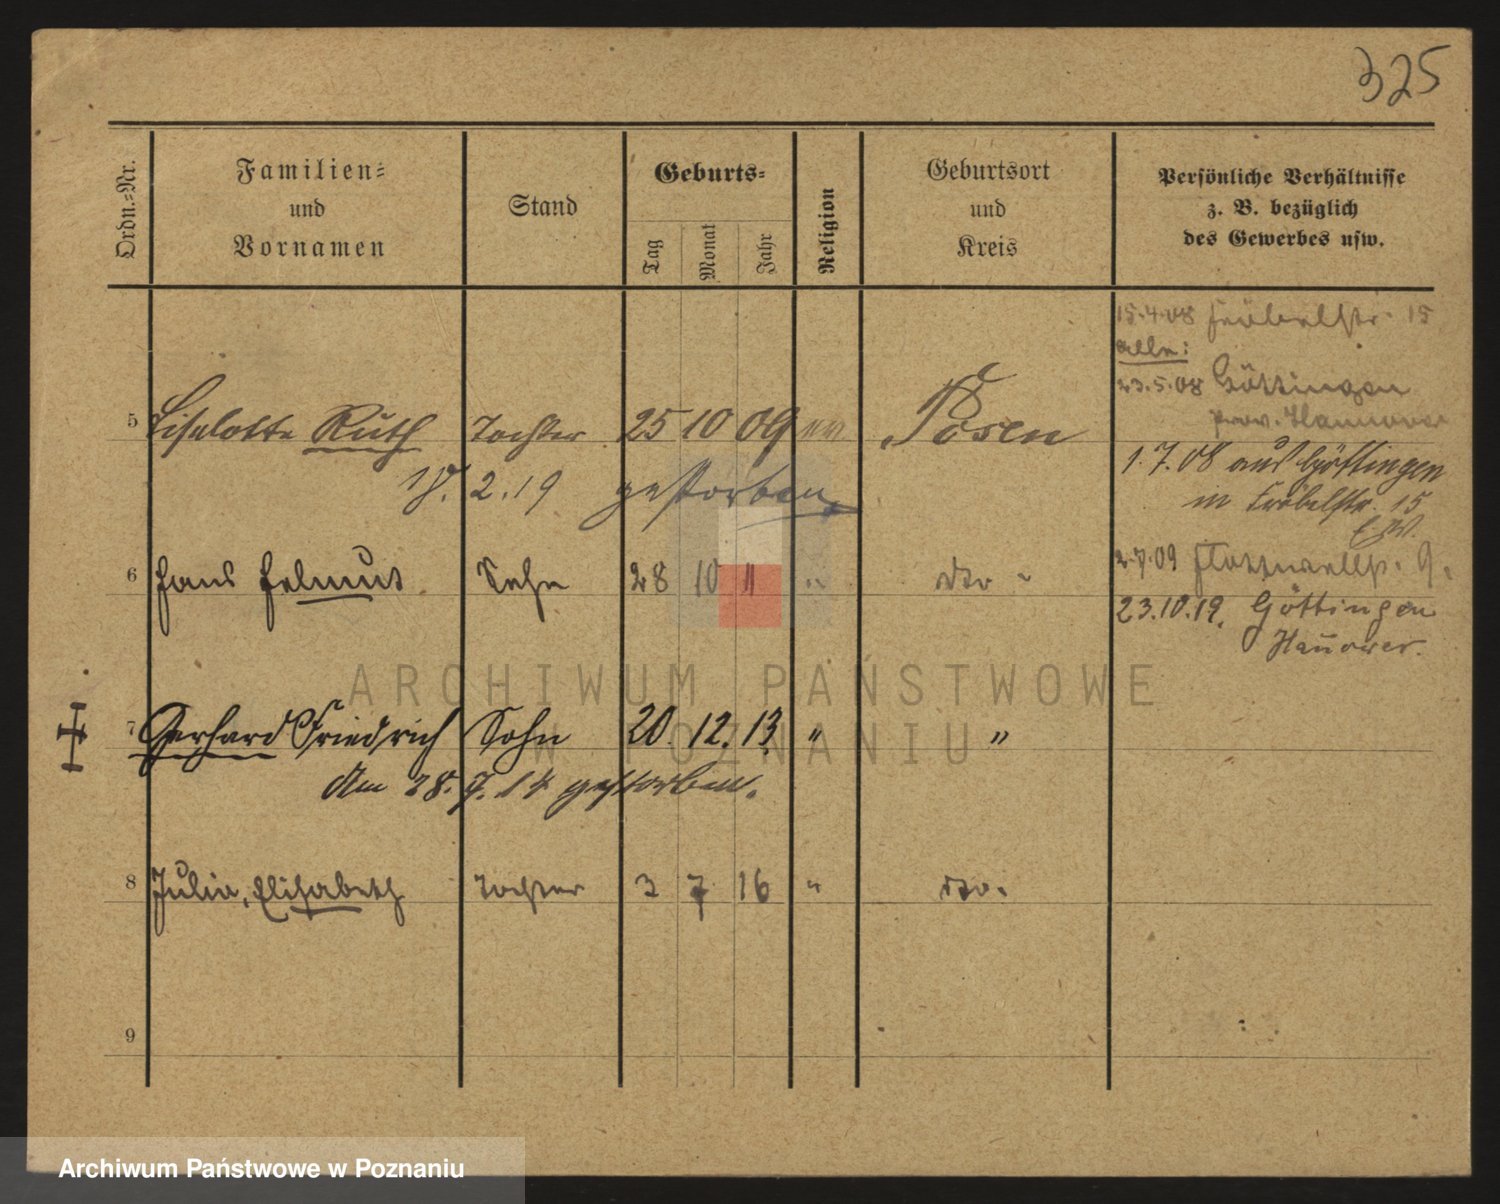 325
Ordn.-Nr.
Familien-
und
Vornamen
Stand
Geburts-
Tag
Monat
Jahr
Religion
Geburtsort
und
Kreis
Persönliche Verhältnisse
z. B. bezüglich
des Gewerbes usw.
15.4.08 Fröbelstr. 15
alln:
23.5.08 Göttingen
Prov. Hannover
5 Liselotte Ruth Tochter 25 10 09 ev Posen
1.7.08 aus Göttingen
in Fröbelstr. 15
18. 2. 19 gestorben
6 Hans Helmut Sohn 28 10 11 " dto "
2.7.09 9.
23.10.19. Göttingen
Hannover.
7 Gerhard Friedrich Sohn 20. 12. 13 " "
Am 28. 7. 14 gestorben.
8 Julia, Elisabeth Tochter 3 7 16 " dto.
9
ARCHIWUM PAŃSTWOWE
W POZNANIU
Archiwum Państwowe w Poznaniu